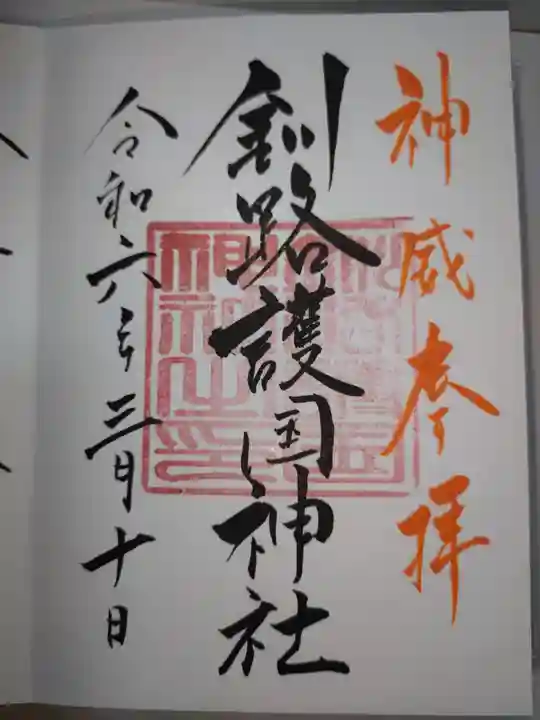 神威奉拝
釧路護国神社
令和六年三月十日